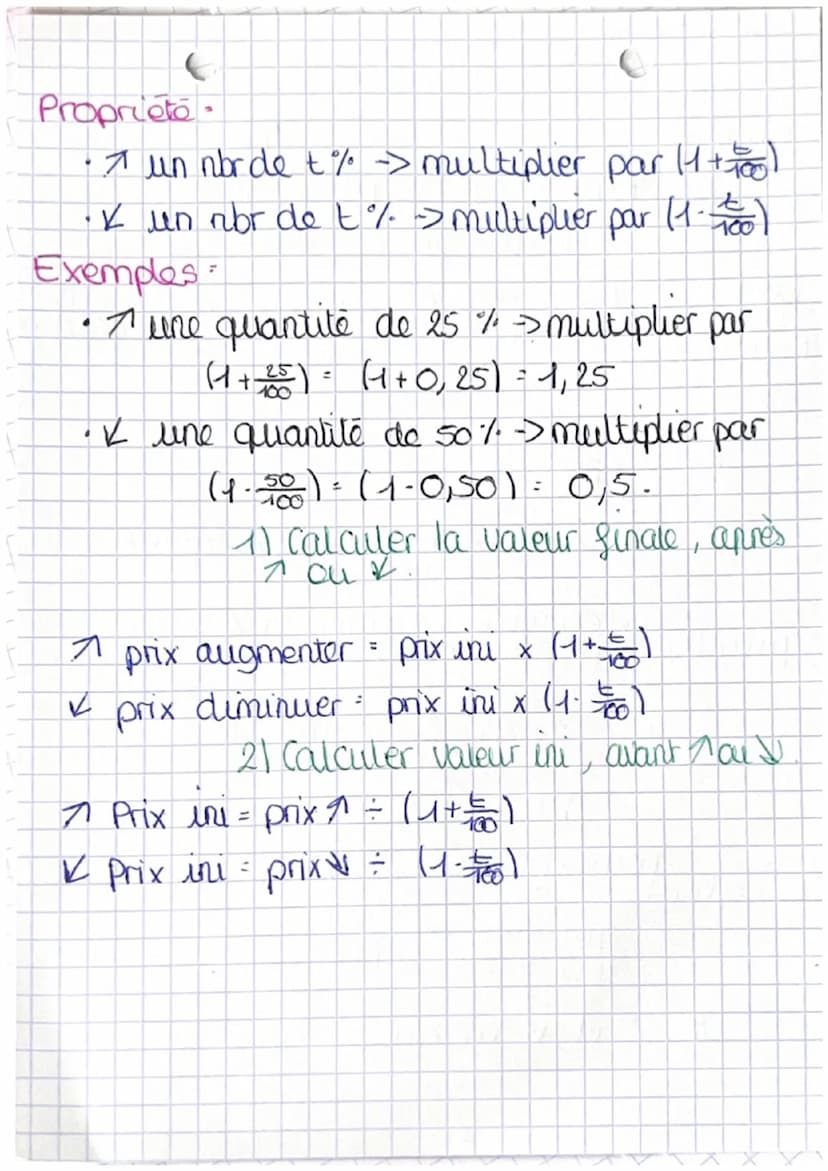 Propriété.
. ↗ un nbr de t % -> multiplier par (1+t/100)
. ↙ un nbr de t % -> multiplier par (1-t/100)
Exemples :
. ↗ une quantité de 25 % -> multiplier par
(1+25/100) = (1+0,25) = 1,25
. ↙ une quantité de 50 % -> multiplier par
(1-50/100) = (1-0,50) = 0,5.
1) Calculer la valeur finale, après
↗ ou ↙.
↗ prix augmenter = prix ini x (1+t/100)
↙ prix diminuer = prix ini x (1-t/100)
2) Calculer valeur ini, avant ↗ ou ↘
↗ Prix ini = prix ↗ ÷ (1+t/100)
↙ Prix ini = prix ↘ ÷ (1-t/100)